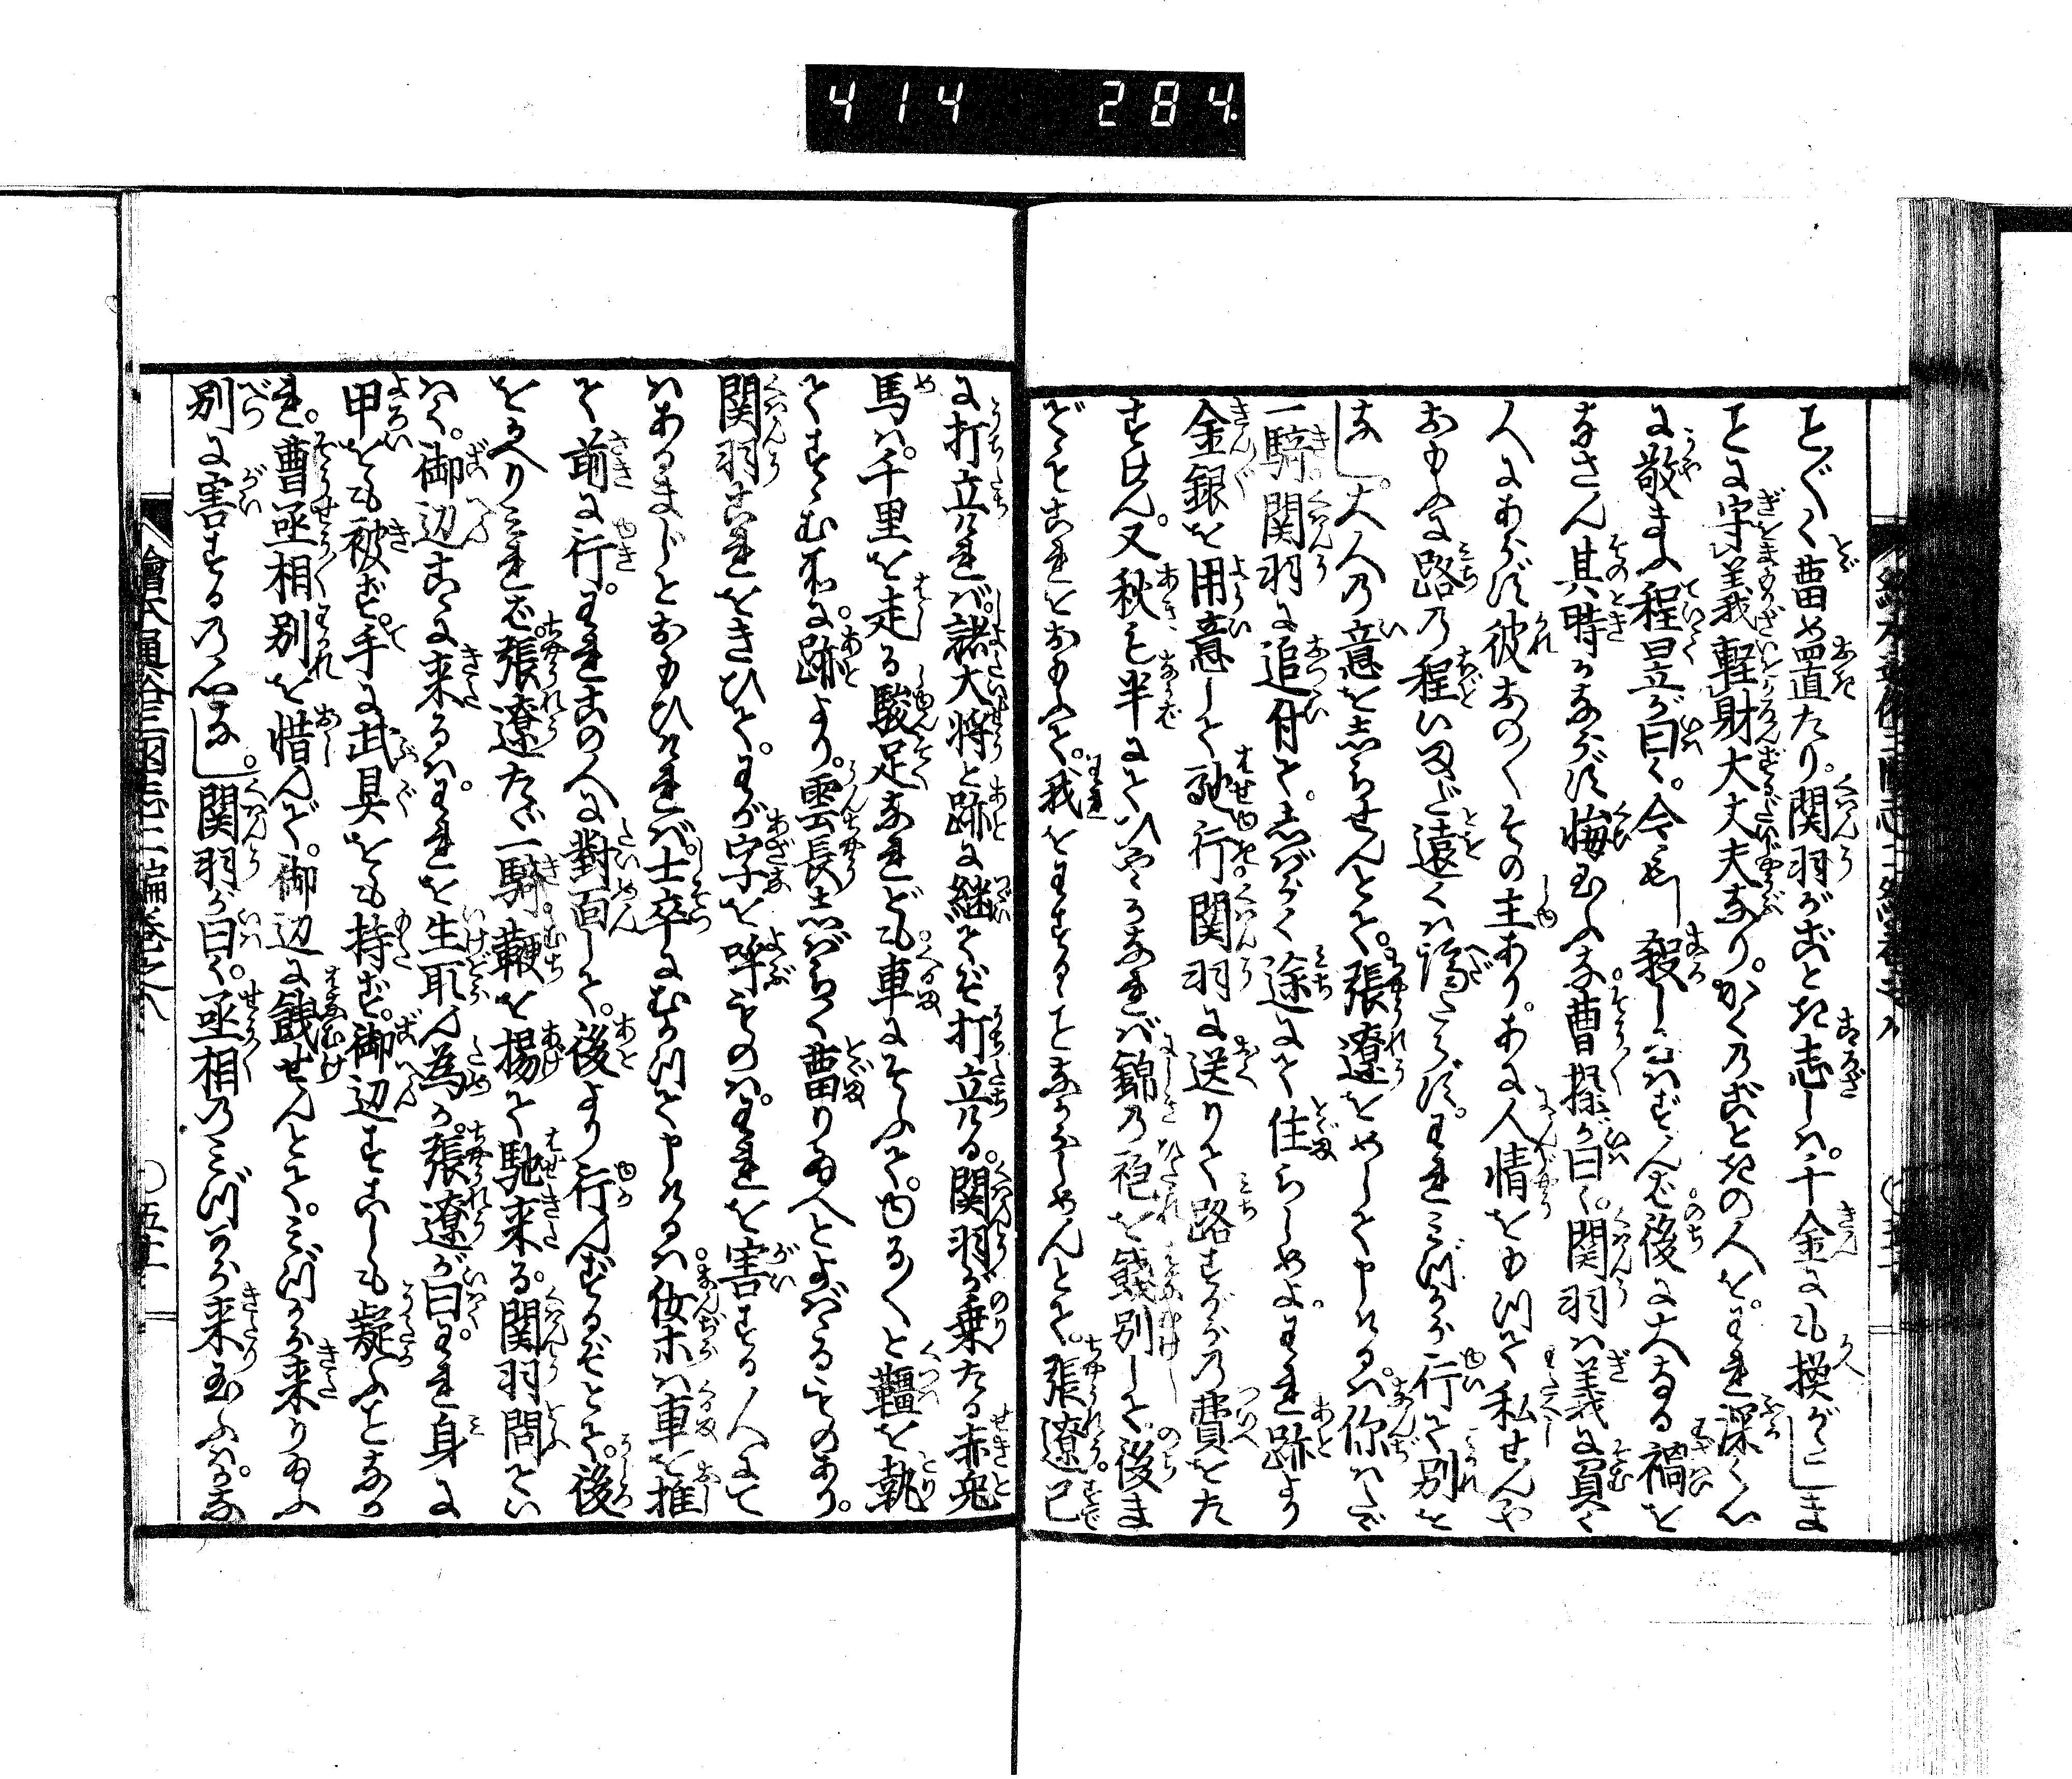 414 284
とぐく畱め置たり。関羽がごとき志しハ。千金にも換がたしま
ことに守義軽財大丈夫なり。かくのごときの人を。われ深く心
に敬まふ程昱が曰く。今もし殺し給ハずんバ後に大なる禍を
なさん其時かならず悔玉ふな曹操が曰く。関羽ハ義に負く
人にあらず彼おの〳〵その主あり。あに人情をもつて私せんや
おもふに路の程いまだ遠くハ隔たらず。われミづから行て別を
なし。大人の意をしらせんとて。張遼をめして申けるハ。你ハたゞ
一騎関羽に追付て。しばらく途にて住らしめよ。われ跡より
金銀を用意して馳行関羽に送りて路すがらの費をた
すけん。又秋も半にていやゝかなれバ錦の袍を餞別して。後ま
でもこれをおもふて。我をわするゝことなからしめんとて。張遼已
に打立けれバ。諸大将と跡に継てぞ打立ける。関羽が乗たる赤兎
馬ハ。千里を走る駿足なれども車にそふて。ゆる〳〵と轡を執
てすゝむ所に。跡より。雲長しばらく畱り給へとよばゝるものあり。
関羽これをきひて。わが字を呼ものハ。われを害する人にて
ハあるまじとおもひけれバ。士卒にむかつて申けるハ。汝等ハ車を推
て前に行。われこの人に對面して。後より行んずるぞとて。後
をかへりミれバ。張遼たゞ一騎。鞭を揚て馳来る。関羽問てい
はく。御辺こゝに来るハ。われを生取ん為か。張遼が曰。われ身に
甲をも被ず。手に武具をも持ず。御辺すこしも疑ふことなか
れ。曹丞相別を惜んで。御辺に餞せんとて。ミづから来り給ふ
別に害するの心なし。関羽が曰く。丞相のミづから来り玉ふハ。な
繪本通俗三國志二編巻之八 〇五十一